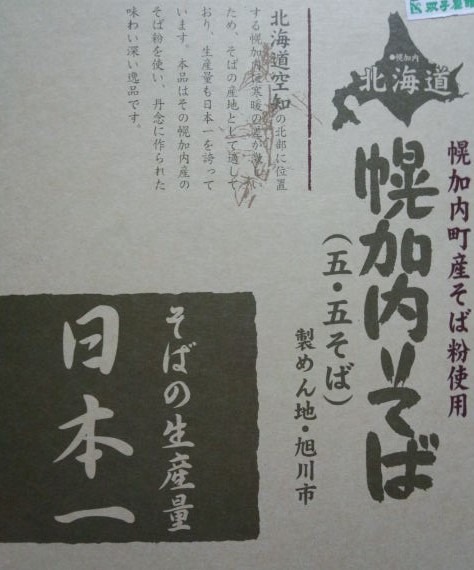 ●幌加内
北海道
幌加内町産そば粉使用
幌加内そば
(五・五そば)
製めん地・旭川市
北海道空知の北部に位置
する幌加内は寒暖の差が激しい
ため、そばの産地として適して
おり、生産量も日本一を誇って
います。本品はその幌加内産の
そば粉を使い、丹念に作られた
味わい深い逸品です。
そばの生産量
日本一